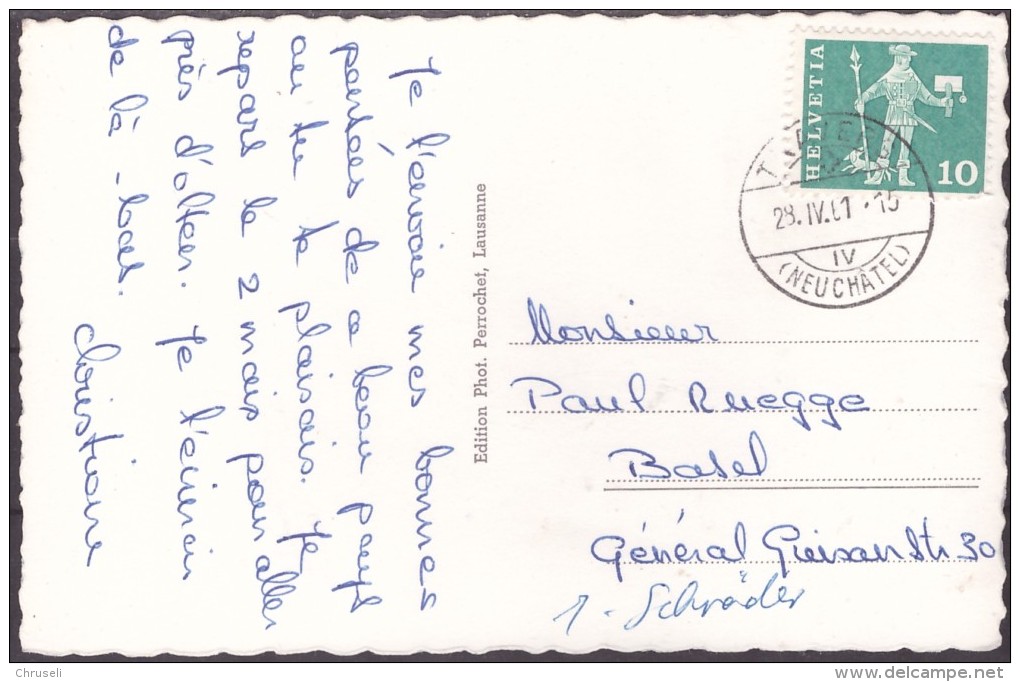 Je t'envoie mes bonnes
pensées de ce beau pays
ou tu te plaisais. Je
repars le 2 mais pour aller
près d'olten. Je t'écrirais
de là-bas.
Christiane
Edition Phot. Perrochet, Lausanne
HELVETIA
10
28.IV.61.-15
IV
(NEUCHÂTEL)
Monsieur
Paul Ruegge
Basel
Général Guisan Str 30
1. Schröder
Chruseli
delcampe.net